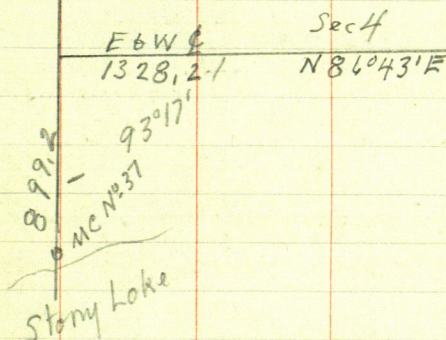 Sec 4
E & W ℄
1328,21 N 86°43'E
93°17'
899,2
MC Nº 37
Stony Lake